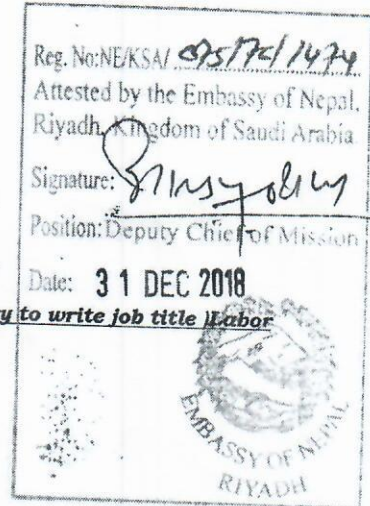 Reg. No:NE/KSA/ 075/76/1474
Attested by the Embassy of Nepal,
Riyadh, Kingdom of Saudi Arabia
Signature:
Position: Deputy Chief of Mission
Date: 31 DEC 2018
y to write job title )Labor
EMBASSY OF NEPAL
RIYADH